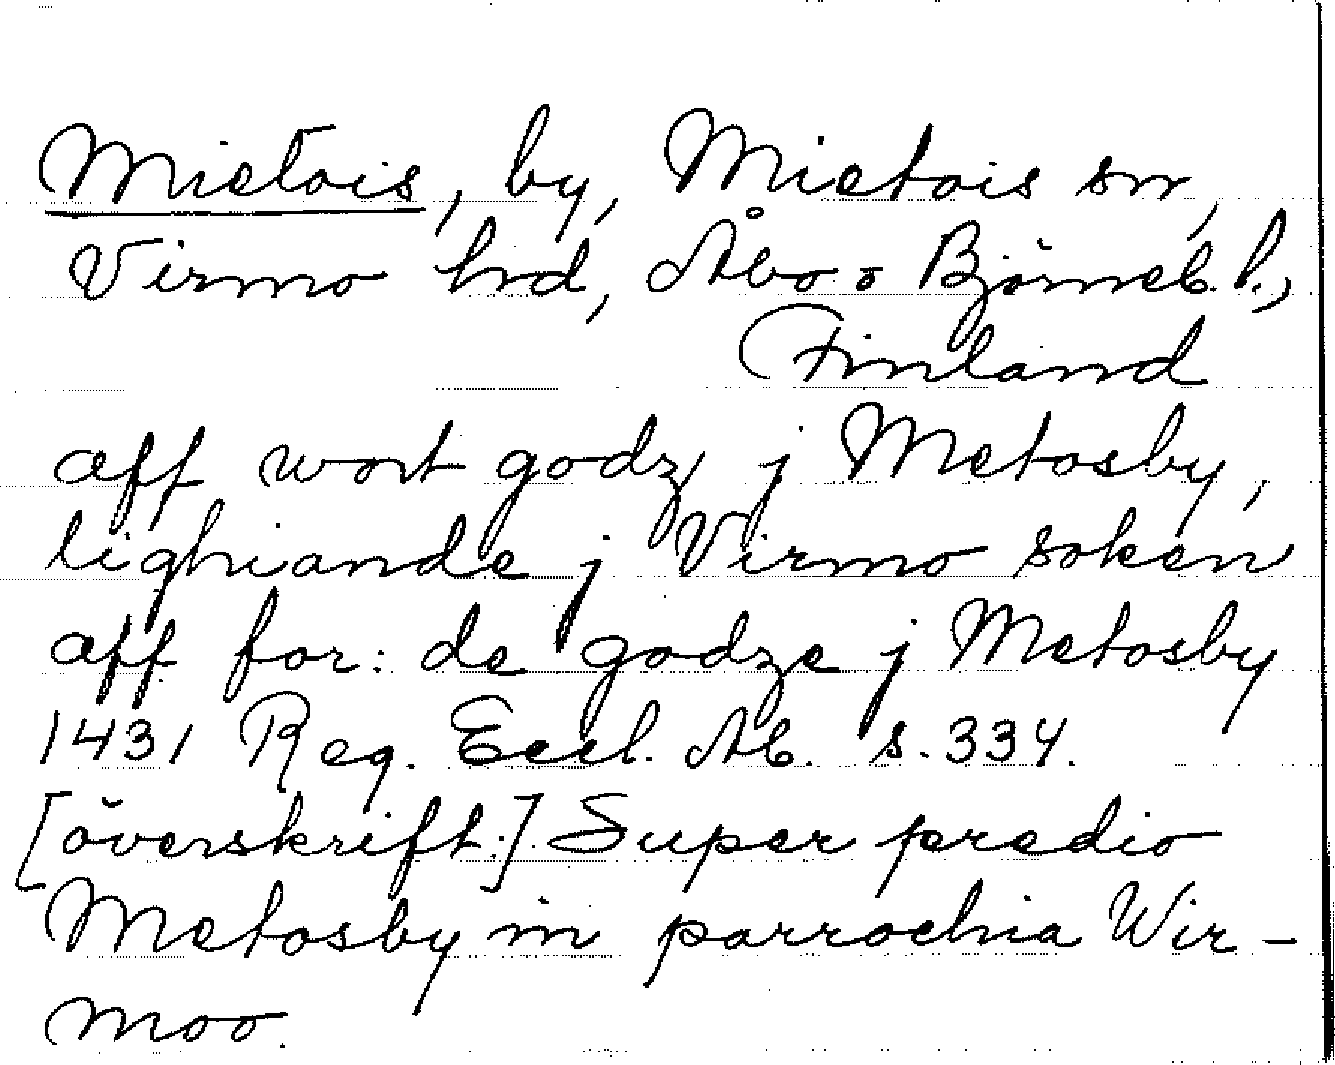 Mietois, by, Mietois sn,
Virmo hrd, Åbo o Björneb. l.,
Finland
aff wort godz j Metosby,
lighiande j Virmo soken
aff for: de godze j Metosby
1431 Reg. Eccl. Ab. s. 334.
[överskrift:] Super predio
Metosby in parrochia Wir-
moo.